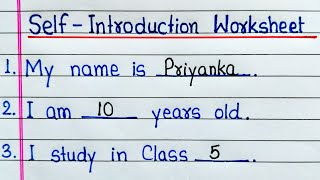 Self-Introduction Worksheet
1. My name is Priyanka.
2. I am 10 years old.
3. I study in Class 5.